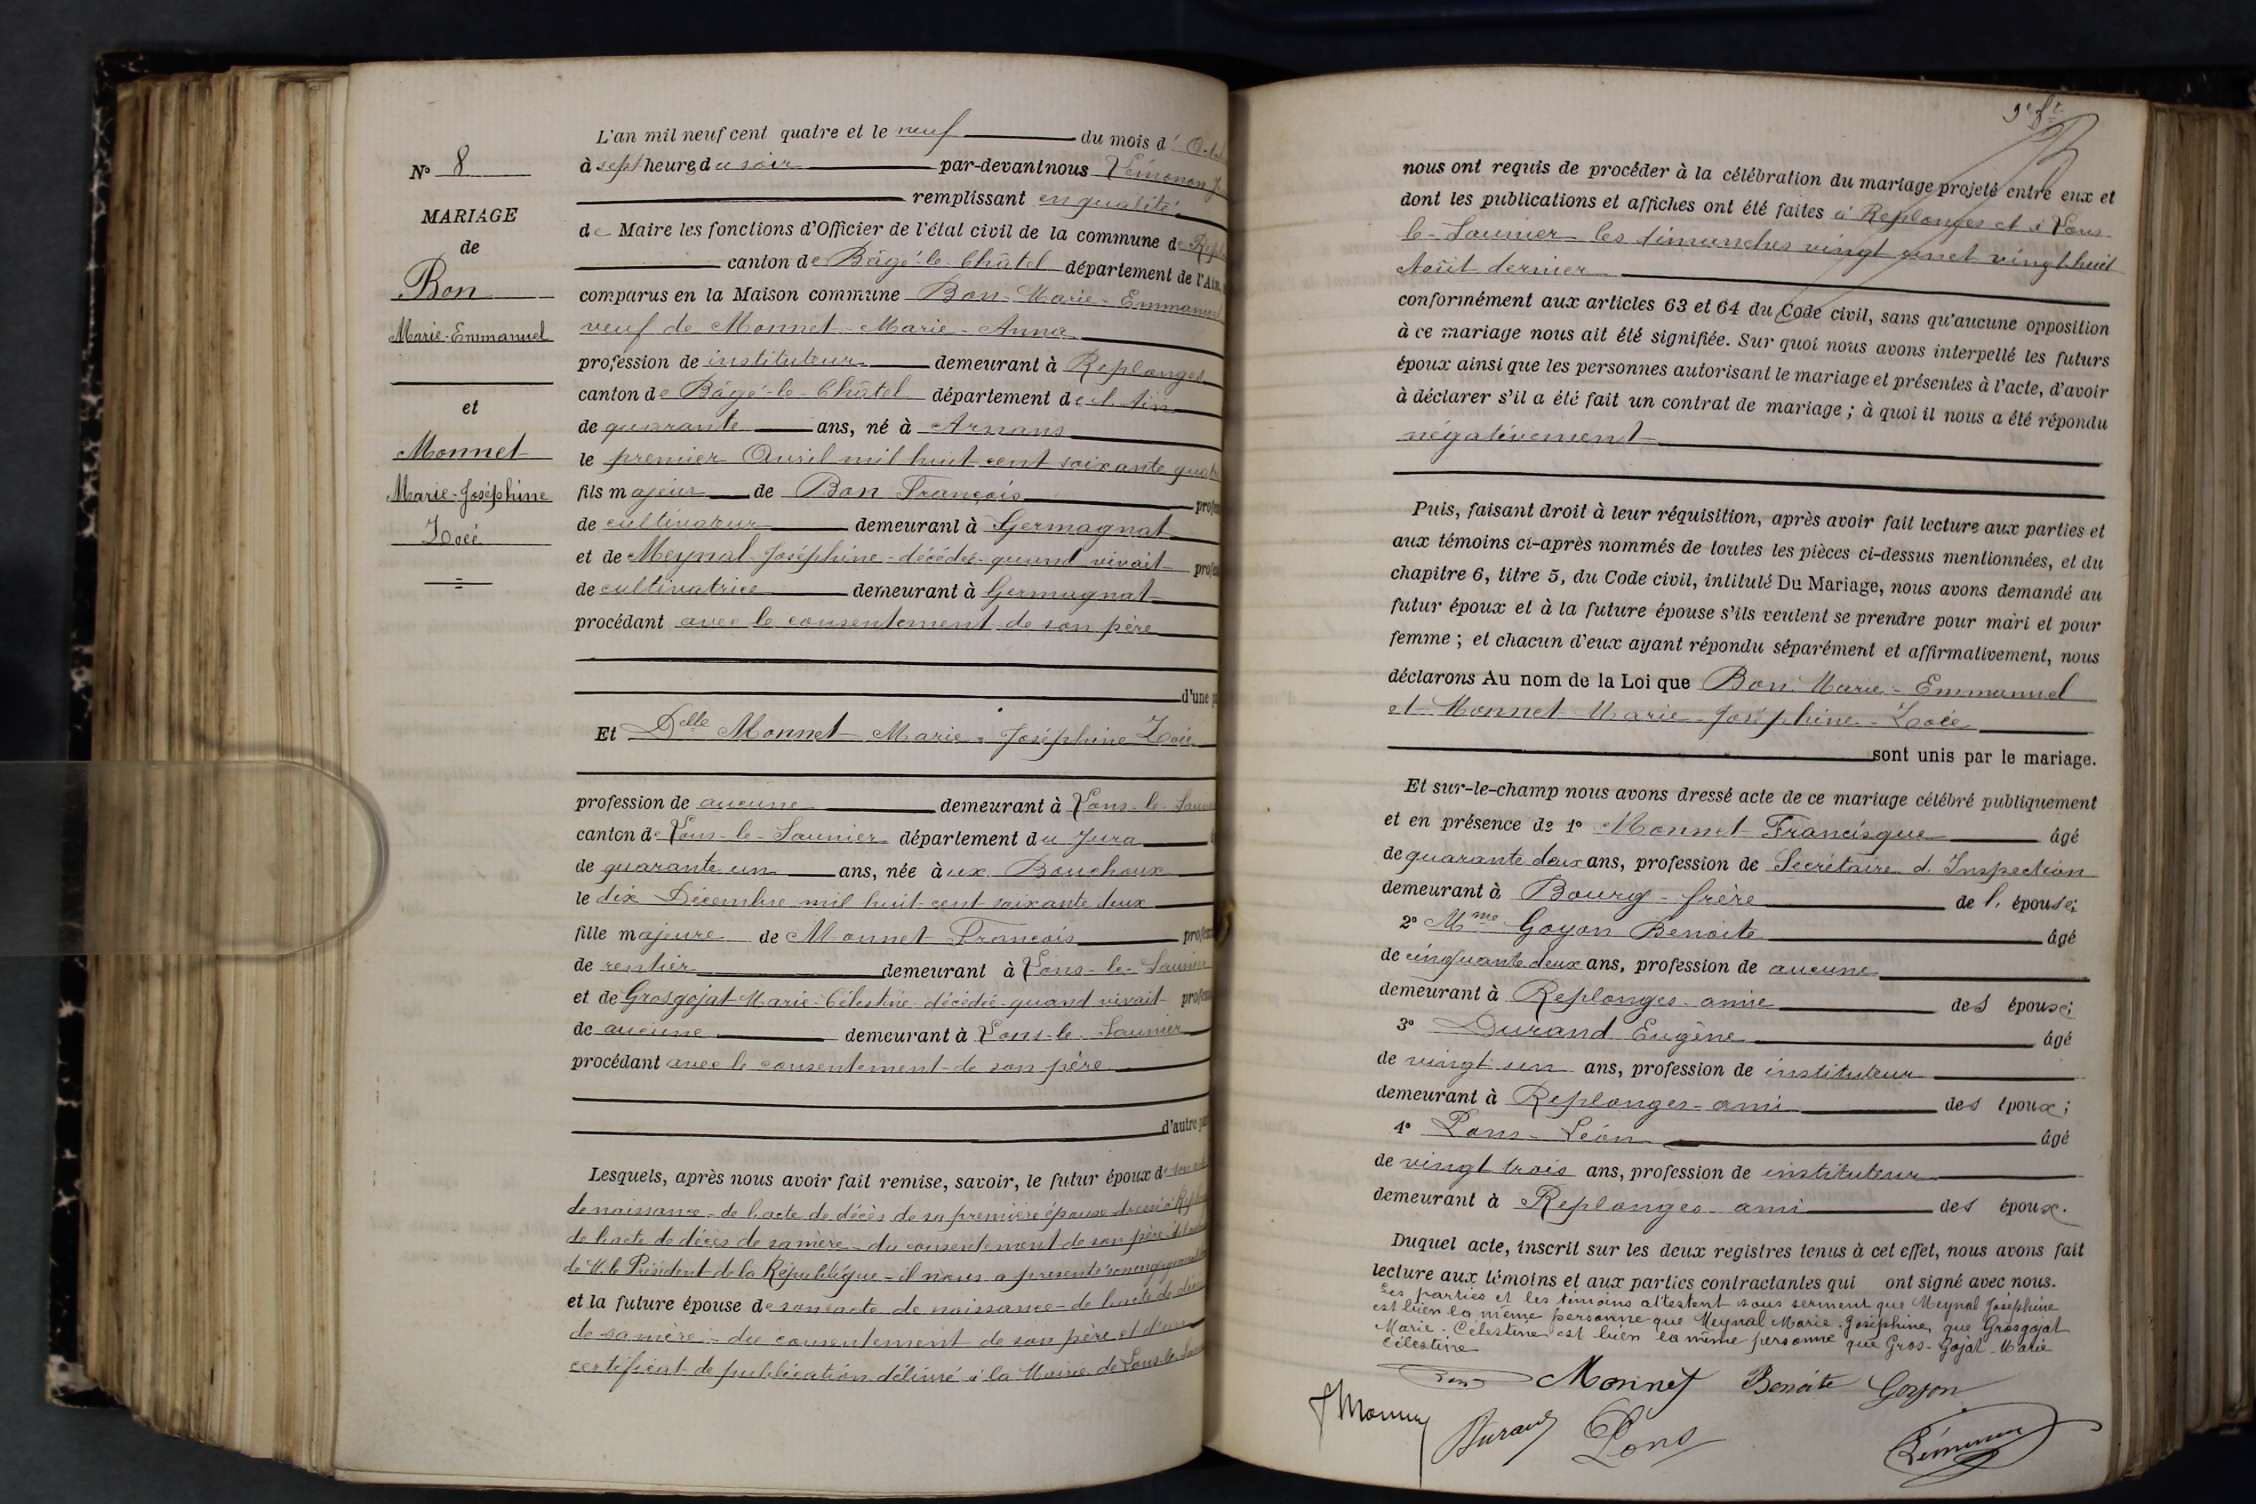 N° 8
MARIAGE
de
Bon
Marie-Emmanuel
et
Monnet
Marie-Joséphine
Zoéé
L'an mil neuf cent quatre et le neuf du mois d'
à sept heures du soir par-devant nous
remplissant en qualité
de Maire les fonctions d'Officier de l'état civil de la commune de
canton de Bâgé-le-Châtel département de l'Ain,
comparus en la Maison commune Bon-Marie-Emmanuel
veuf de Monnet-Marie-Anna
profession de instituteur demeurant à Replonges
canton de Bâgé-le-Châtel département de l'Ain
de quarante ans, né à Arnans
le premier Avril mil huit cent soixante quatre
fils majeur de Bon François
de cultivateur demeurant à Germagnat
et de Meynal Joséphine-décédée-quand vivait
de cultivatrice demeurant à Germagnat
procédant avec le consentement de son père
d'une
Et Delle Monnet-Marie-Joséphine Zoéé
profession de aucune demeurant à Lons-le-Saunier
canton de Lons-le-Saunier département du Jura
de quarante un ans, née à ux Bouchoux
le dix Décembre mil huit cent soixante deux
fille majeure de Monnet François
de rentier demeurant à Lons-le-Saunier
et de Grosgojat-Marie-Célestine-décédée-quand vivait
de aucune demeurant à Lons-le-Saunier
procédant avec le consentement de son père
d'autre
Lesquels, après nous avoir fait remise, savoir, le futur époux de son
de naissance-de l'acte de décès de sa première épouse dressé à
de l'acte de décès de sa mère-du consentement de son père
de M. le Président de la République-il nous a présenté son
et la future épouse de son acte de naissance-de l'acte de décès
de sa mère-du consentement de son père et d'un
certificat de publication délivré à la Mairie de Lons-le-
nous ont requis de procéder à la célébration du mariage projeté entre eux et
dont les publications et affiches ont été faites à Replonges et à Lons-
le-Saunier les dimanches vingt un et vingt huit
Août dernier
conformément aux articles 63 et 64 du Code civil, sans qu'aucune opposition
à ce mariage nous ait été signifiée. Sur quoi nous avons interpellé les futurs
époux ainsi que les personnes autorisant le mariage et présentes à l'acte, d'avoir
à déclarer s'il a été fait un contrat de mariage ; à quoi il nous a été répondu
négativement
Puis, faisant droit à leur réquisition, après avoir fait lecture aux parties et
aux témoins ci-après nommés de toutes les pièces ci-dessus mentionnées, et du
chapitre 6, titre 5, du Code civil, intitulé Du Mariage, nous avons demandé au
futur époux et à la future épouse s'ils veulent se prendre pour mari et pour
femme ; et chacun d'eux ayant répondu séparément et affirmativement, nous
déclarons Au nom de la Loi que Bon Marie-Emmanuel
et Monnet Marie-Joséphine-Zoéé
sont unis par le mariage.
Et sur-le-champ nous avons dressé acte de ce mariage célébré publiquement
et en présence de 1° Monnet Francisque âgé
de quarante deux ans, profession de Secrétaire d'Inspection
demeurant à Bourg-frère de l'épouse;
2° Mme Goyon Benoite âgé
de cinquante deux ans, profession de aucune
demeurant à Replonges-amie des époux;
3° Durand Eugène âgé
de vingt un ans, profession de instituteur
demeurant à Replonges-ami des époux;
4° Pons-Léon âgé
de vingt trois ans, profession de instituteur
demeurant à Replonges-ami des époux.
Duquel acte, inscrit sur les deux registres tenus à cet effet, nous avons fait
lecture aux témoins et aux parties contractantes qui ont signé avec nous.
Les parties et les témoins attestent sous serment que Meynal Joséphine
est bien la même personne que Meynal Marie-Joséphine, que Grosgojat
Marie-Célestine est bien la même personne que Gros-Gojat-Marie
Célestine
Bon Monnet Benoite Goyon
F Monnet Durand Pons